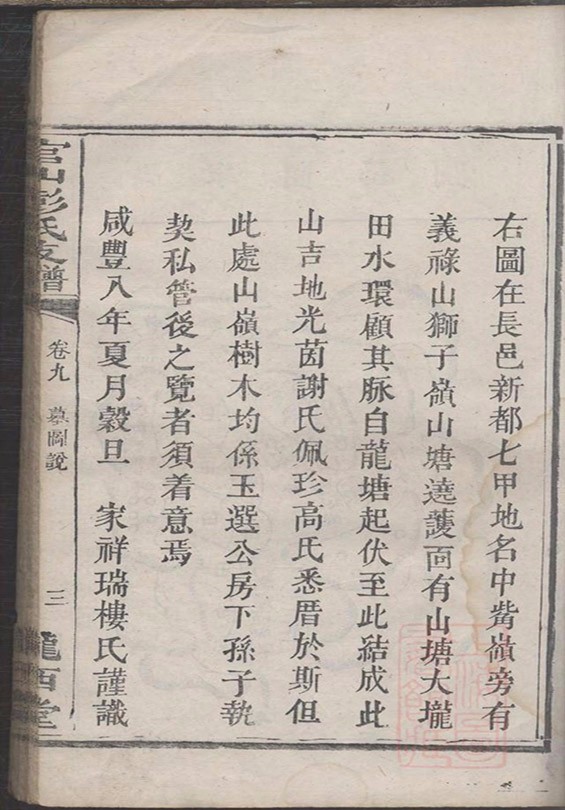 右圖在長邑新都七甲地名中觜嶺旁有
義祿山獅子嶺山塘遶護面有山塘大壠
田水環顧其脉自龍塘起伏至此結成此
山吉地光茵謝氏佩珍高氏悉厝於斯但
此處山嶺樹木均係玉選公房下孫子執
契私管後之覽者須着意焉
咸豐八年夏月穀旦 家祥瑞樓氏謹識
官山彭氏支譜 卷九 墓圖說 三 隴西堂